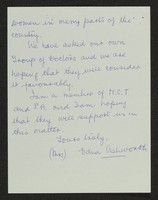 women in many parts of the
country.
We have asked our own
Group of Doctors and we are
hoping that they will consider
it favourably.
I am a member of N.C.T
and P.A. and I am hoping
that they will support us in
this matter.
Yours truly,
(Mrs) Edna Ashworth